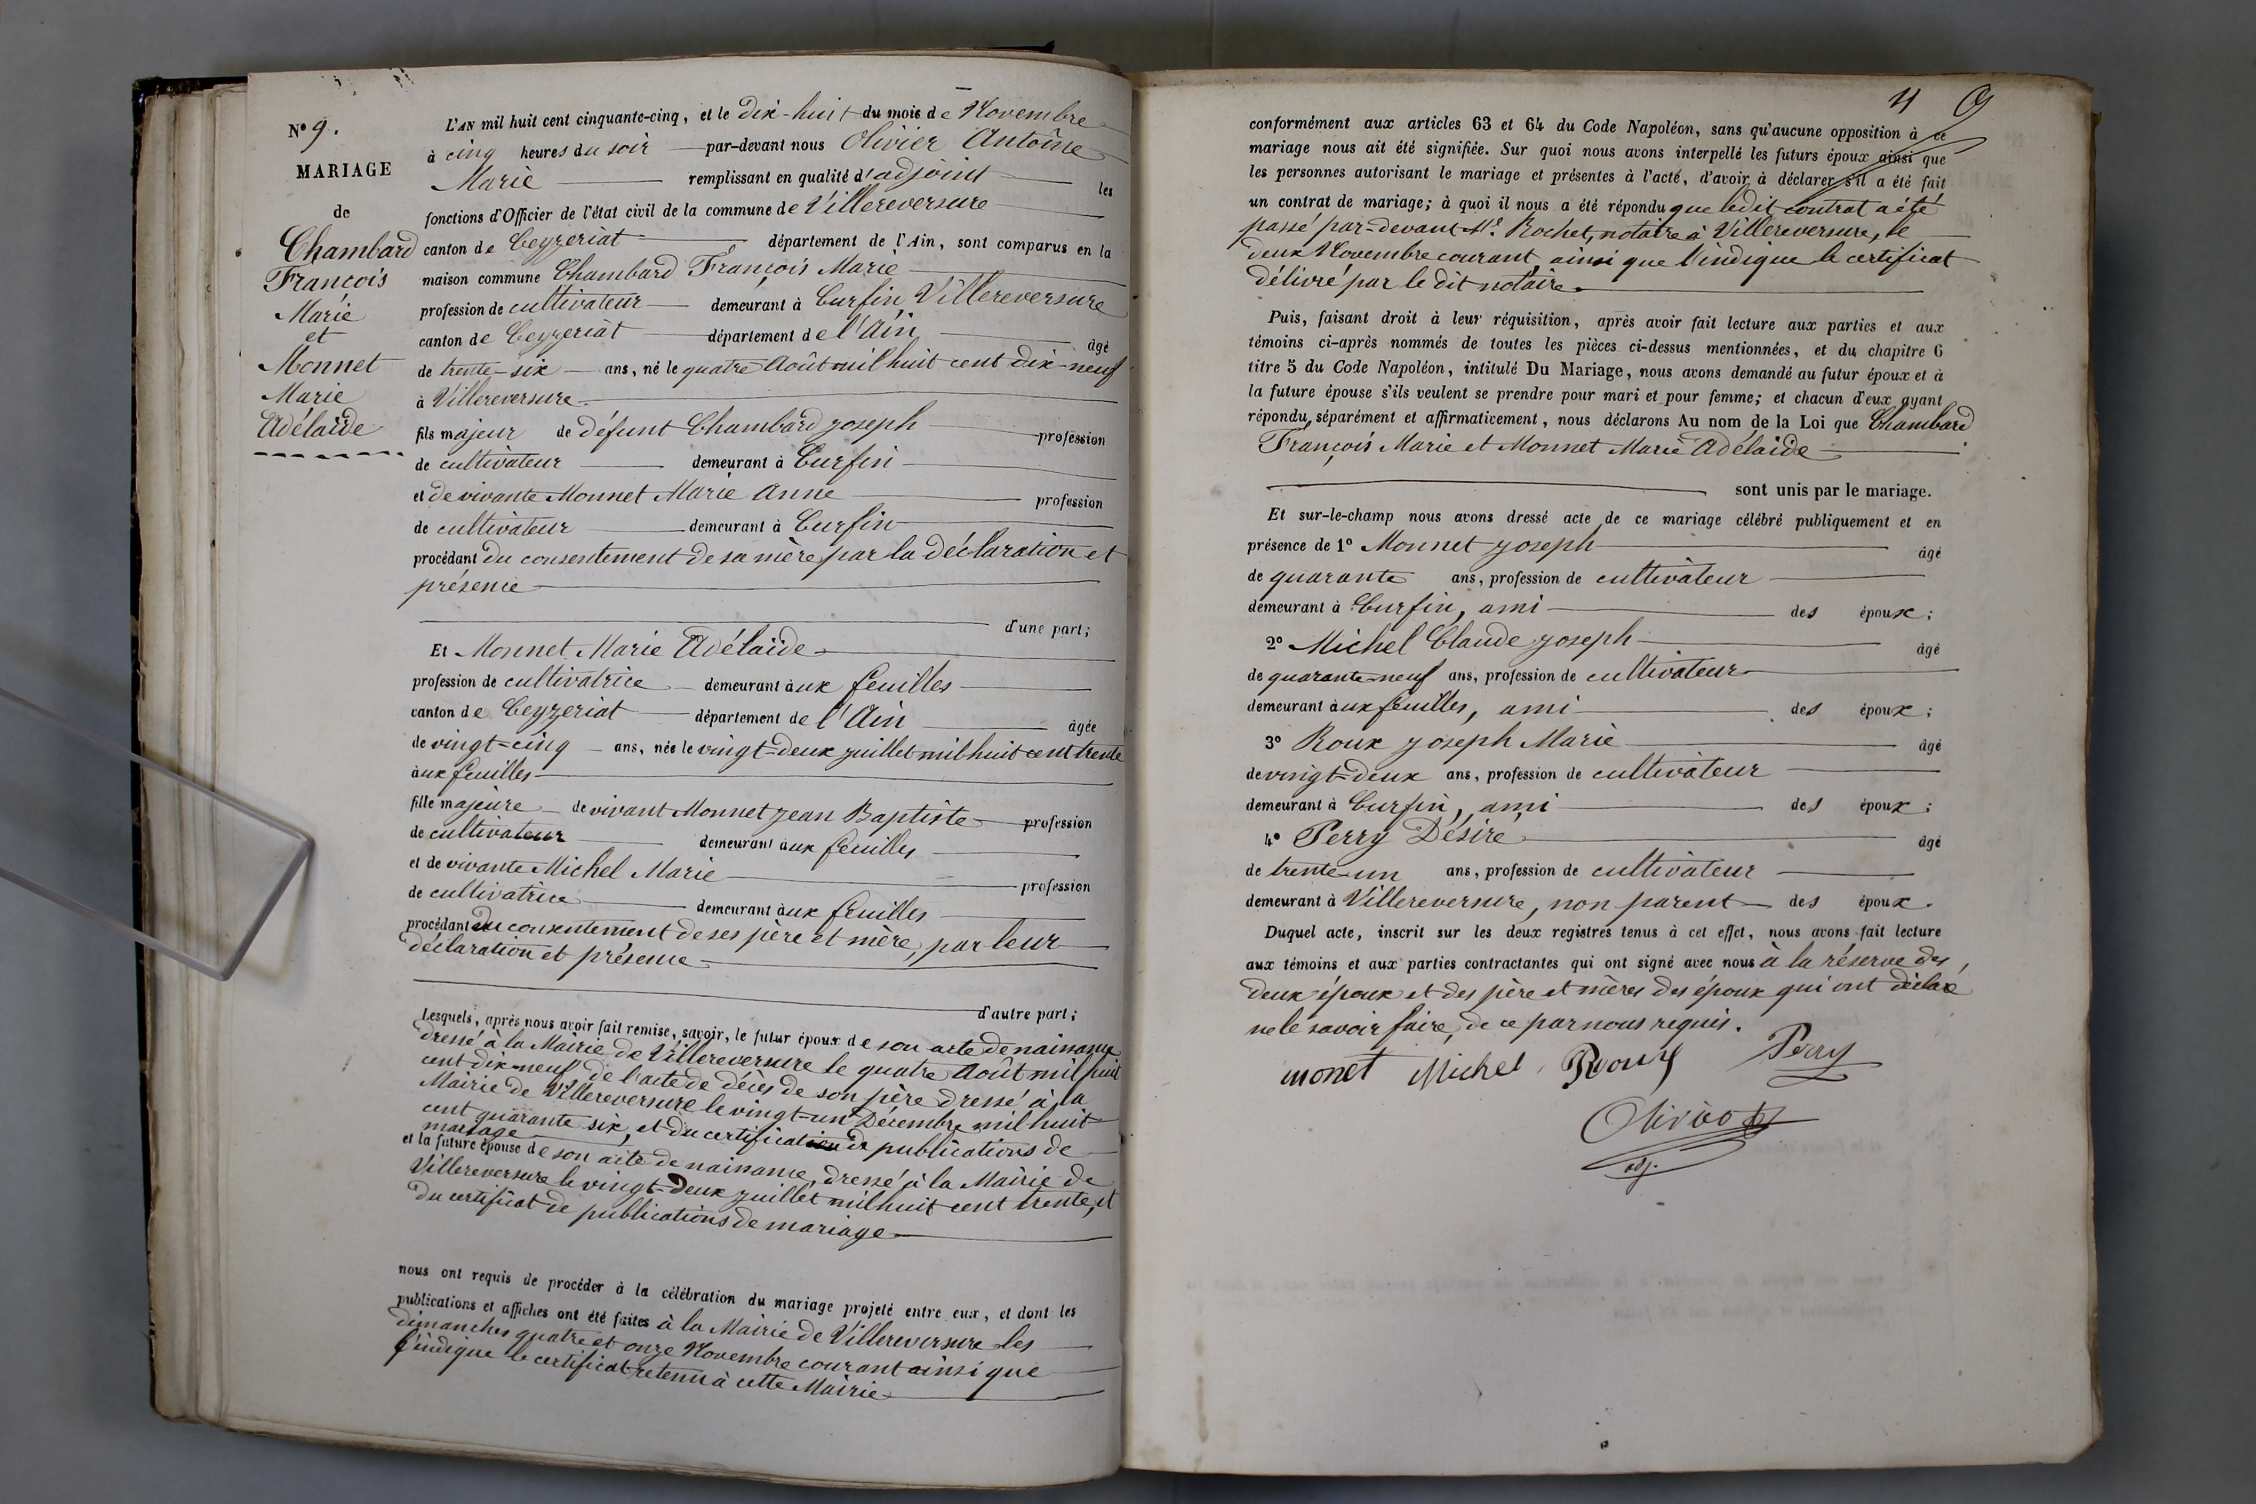 N° 9.
MARIAGE
de
Chambard
François
Marie
et
Monnet
Marie
Adélaïde
L'AN mil huit cent cinquante-cinq, et le dix-huit du mois de Novembre
à cinq heures du soir par-devant nous Olivier Antoine
Marie remplissant en qualité d'adjoint les
fonctions d'Officier de l'état civil de la commune de Villereversure
canton de Ceyzeriat département de l'Ain, sont comparus en la
maison commune Chambard François Marie
profession de cultivateur demeurant à Curfin Villereversure
canton de Ceyzeriat département de l'Ain âgé
de trente-six ans, né le quatre Août mil huit cent dix-neuf
à Villereversure
fils majeur de défunt Chambard joseph profession
de cultivateur demeurant à Curfin
et de vivante Monnet Marie Anne profession
de cultivateur demeurant à Curfin
procédant du consentement de sa mère par la déclaration et
présence
d'une part;
Et Monnet Marie Adélaïde
profession de cultivatrice demeurant aux feuilles
canton de Ceyzeriat département de l'Ain âgée
de vingt-cinq ans, née le vingt-deux juillet mil huit cent trente
aux feuilles
fille majeure de vivant Monnet jean Baptiste profession
de cultivateur demeurant aux feuilles
et de vivante Michel Marie profession
de cultivatrice demeurant aux feuilles
procédant du consentement de ses père et mère, par leur
déclaration et présence
d'autre part;
Lesquels, après nous avoir fait remise, savoir, le futur époux de son acte de naissance
dressé à la Mairie de Villereversure le quatre Août mil huit
cent dix-neuf de l'acte de décès de son père dressé à la
Mairie de Villereversure le vingt-un Décembre mil huit
cent quarante six, et du certificat de publications de
mariage
et la future épouse de son acte de naissance, dressé à la Mairie de
Villereversure le vingt-deux juillet mil huit cent trente, et
du certificat de publications de mariage
nous ont requis de procéder à la célébration du mariage projeté entre eux, et dont les
publications et affiches ont été faites à la Mairie de Villereversure les
dimanches quatre et onze Novembre courant ainsi que
l'indique le certificat retenu à cette Mairie
9
conformément aux articles 63 et 64 du Code Napoléon, sans qu'aucune opposition à ce
mariage nous ait été signifiée. Sur quoi nous avons interpellé les futurs époux ainsi que
les personnes autorisant le mariage et présentes à l'acte, d'avoir à déclarer s'il a été fait
un contrat de mariage; à quoi il nous a été répondu que ledit contrat a été
passé par-devant Me. Rochet, notaire à Villereversure, le
deux Novembre courant, ainsi que l'indique le certificat
délivré par le dit notaire.
Puis, faisant droit à leur réquisition, après avoir fait lecture aux parties et aux
témoins ci-après nommés de toutes les pièces ci-dessus mentionnées, et du chapitre 6
titre 5 du Code Napoléon, intitulé Du Mariage, nous avons demandé au futur époux et à
la future épouse s'ils veulent se prendre pour mari et pour femme; et chacun d'eux ayant
répondu séparément et affirmativement, nous déclarons Au nom de la Loi que Chambard
François Marie et Monnet Marie Adélaïde
sont unis par le mariage.
Et sur-le-champ nous avons dressé acte de ce mariage célébré publiquement et en
présence de 1° Monnet joseph âgé
de quarante ans, profession de cultivateur
demeurant à Curfin, ami des époux;
2° Michel Claude joseph âgé
de quarante-neuf ans, profession de cultivateur
demeurant aux feuilles, ami des époux;
3° Roux joseph Marie âgé
de vingt-deux ans, profession de cultivateur
demeurant à Curfin, ami des époux;
4° Perry Désiré âgé
de trente-un ans, profession de cultivateur
demeurant à Villereversure, non parent des époux.
Duquel acte, inscrit sur les deux registres tenus à cet effet, nous avons fait lecture
aux témoins et aux parties contractantes qui ont signé avec nous à la réserve des
deux époux et des père et mères des époux qui ont déclaré
ne le savoir faire, de ce par nous requis.
monet Michel Roux Perry
Olivier
adj.